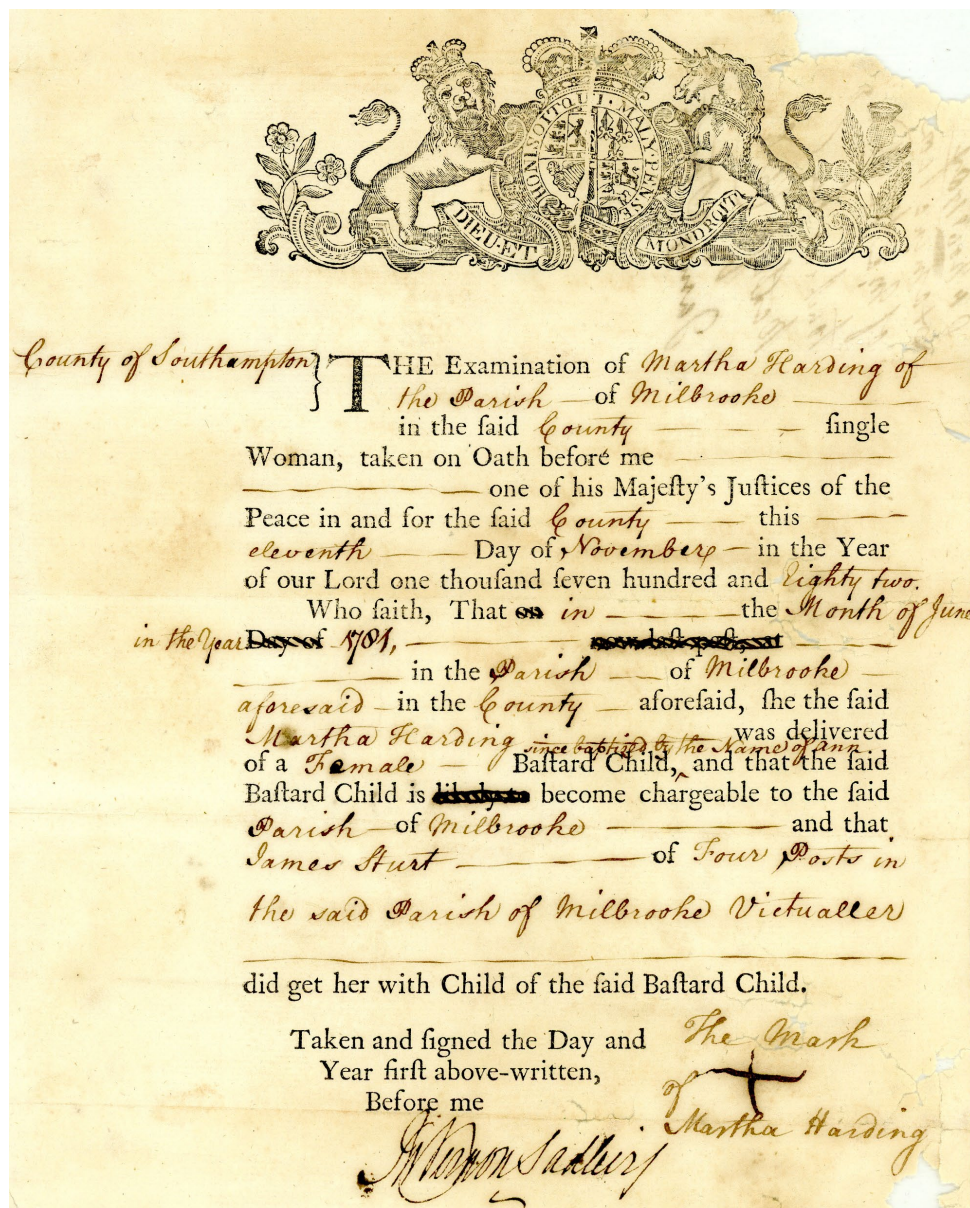 HONI·SOIT·QUI·MAL·Y·PENSE
DIEU·ET
MON·DROIT
County of Southampton } THE Examination of Martha Harding of
the Parish — of Milbrooke —
in the ſaid County — — — ſingle
Woman, taken on Oath before me —
— one of his Majeſty's Juſtices of the
Peace in and for the ſaid County — this —
eleventh — Day of November — in the Year
of our Lord one thouſand ſeven hundred and Eighty two.
Who ſaith, That on in — the Month of June
in the Year Day of 1781, — now laſt paſt, at —
— in the Parish — of Milbrooke —
aforesaid — in the County — aforeſaid, ſhe the ſaid
Martha Harding was delivered
since baptized by the Name of ann
of a Female — Baſtard Child, ‸ and that the ſaid
Baſtard Child is likely to become chargeable to the ſaid
Parish — of Milbrooke — and that
James Sturt — of Four Posts in
the said Parish of Milbrooke Victualler
did get her with Child of the ſaid Baſtard Child.
Taken and ſigned the Day and
Year firſt above-written,
Before me
The Mark
of +
Martha Harding
Vernon Sadleir